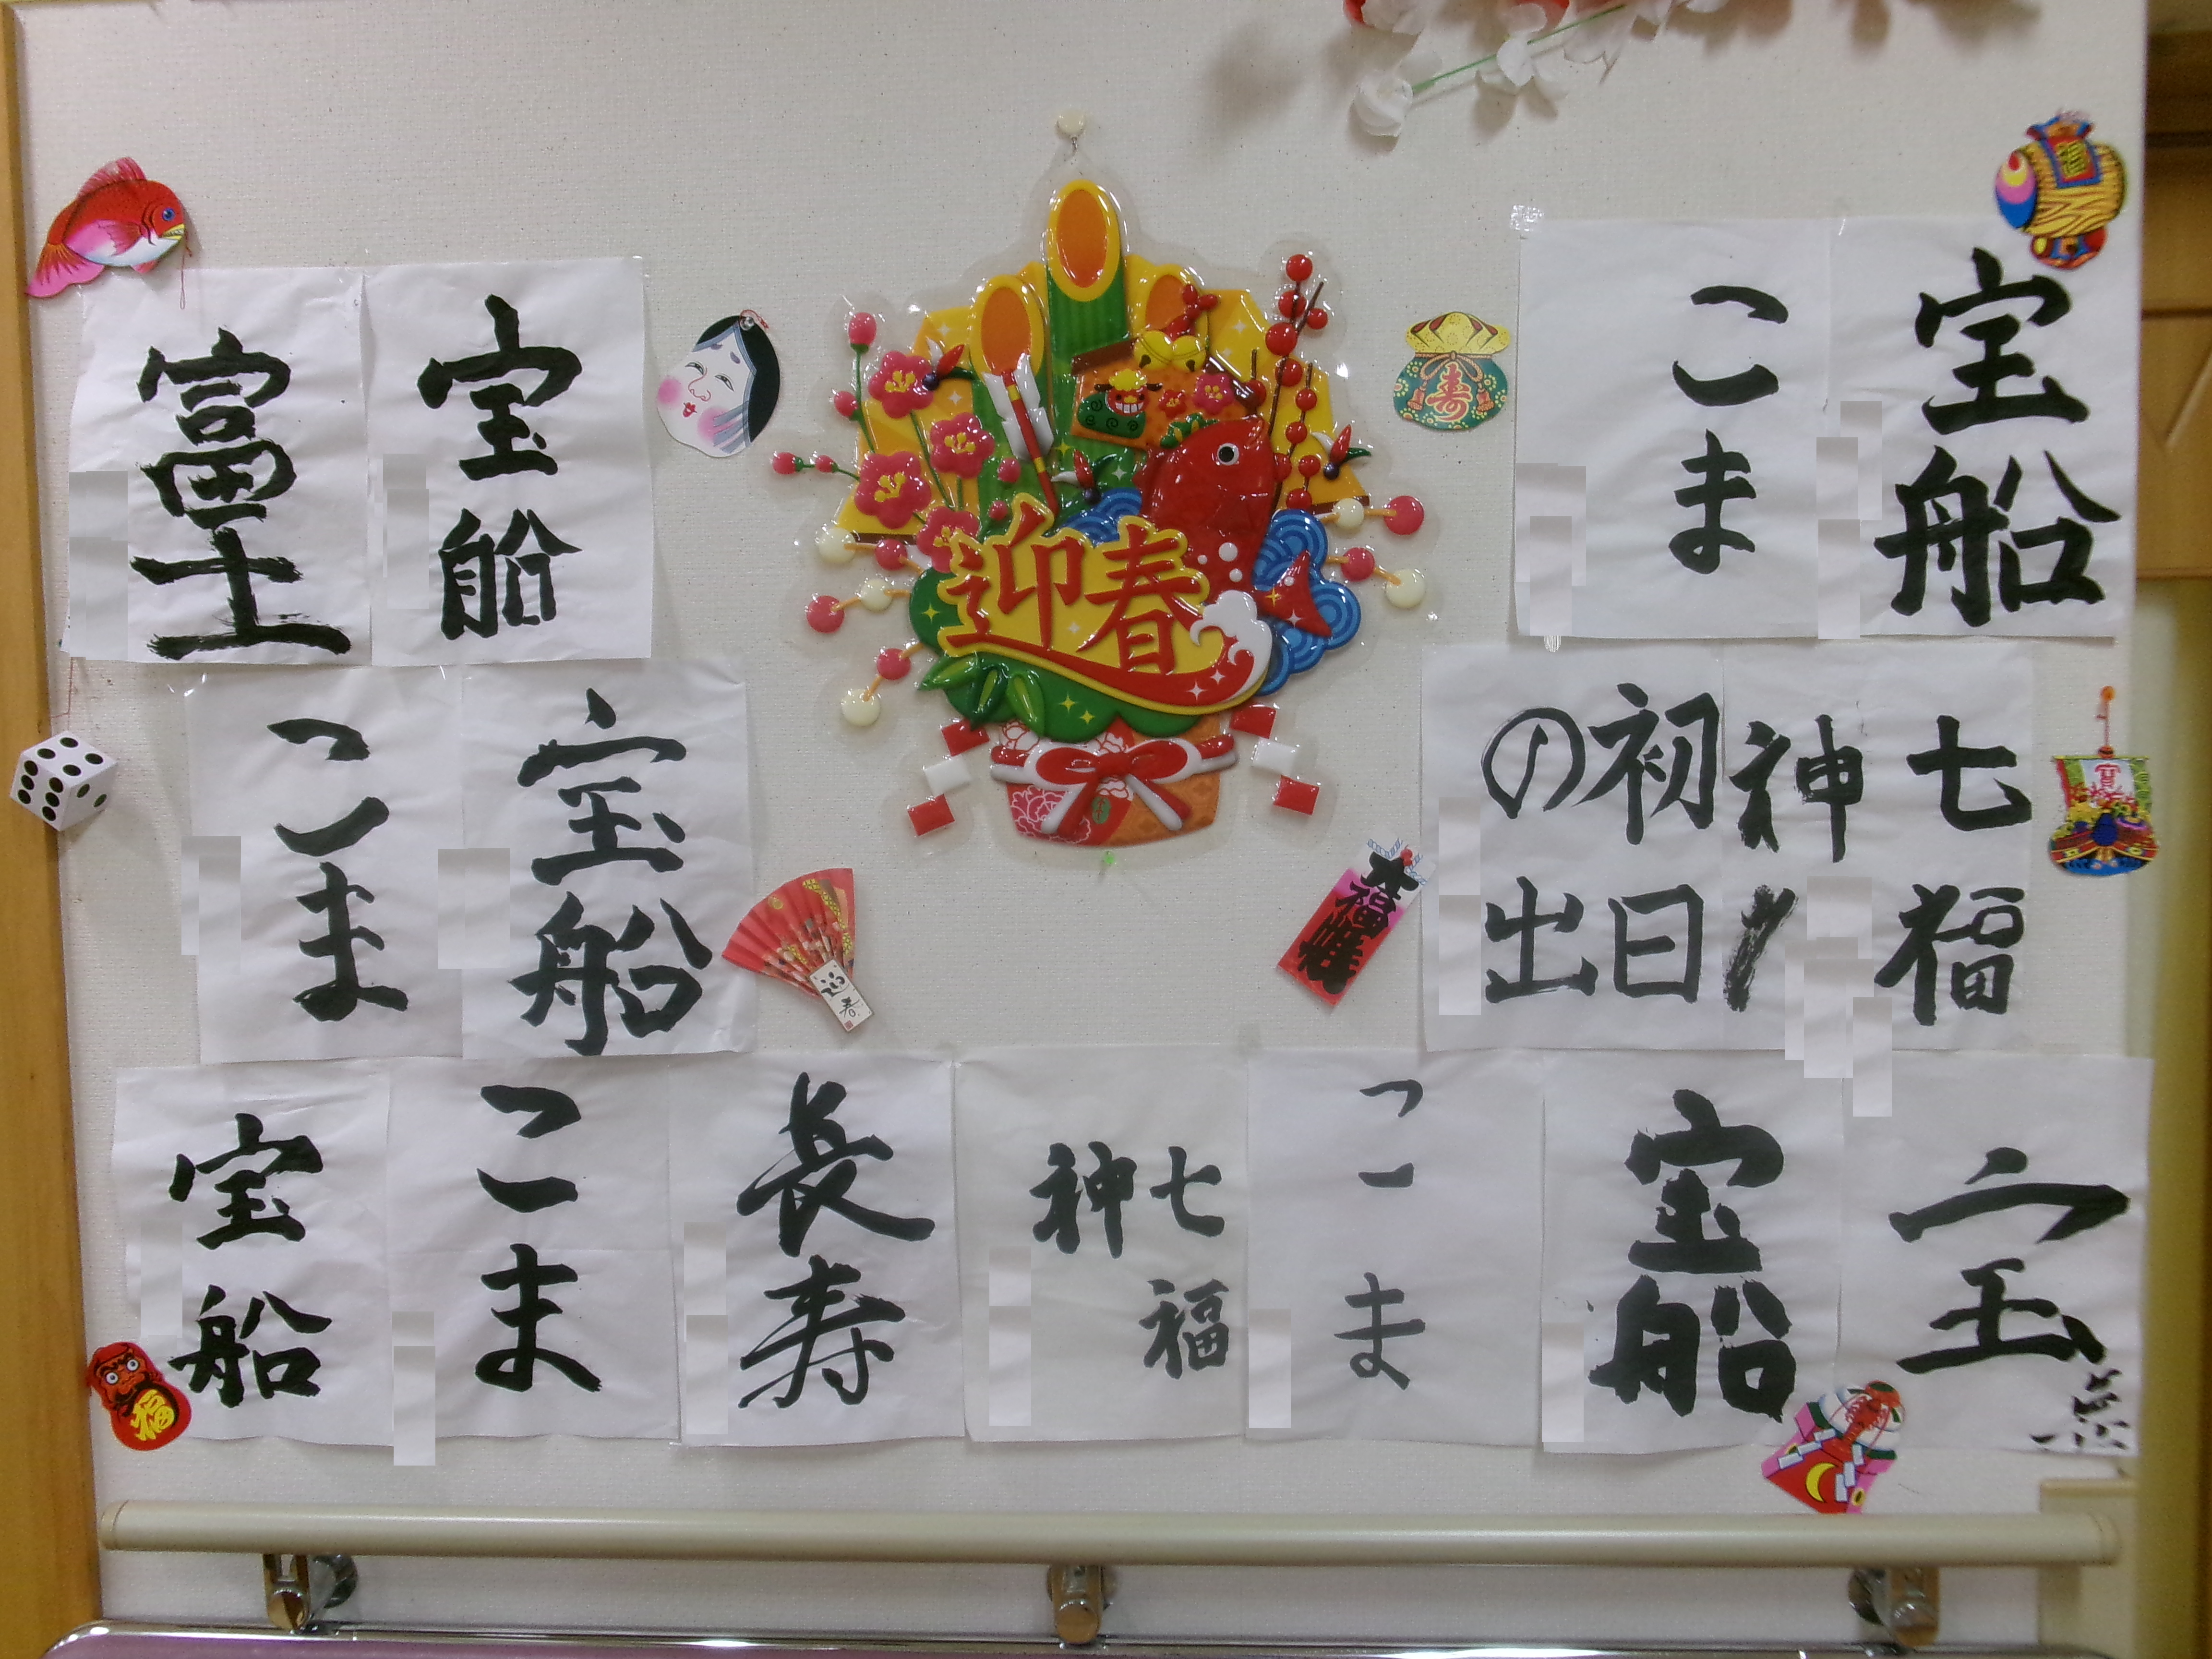 迎春
富士
宝船
こま
宝船
こま
宝船
初日
の出
七福
神
宝船
こま
長寿
七福
神
こま
宝船
宝
寿
大福帳
迎春
福
宝